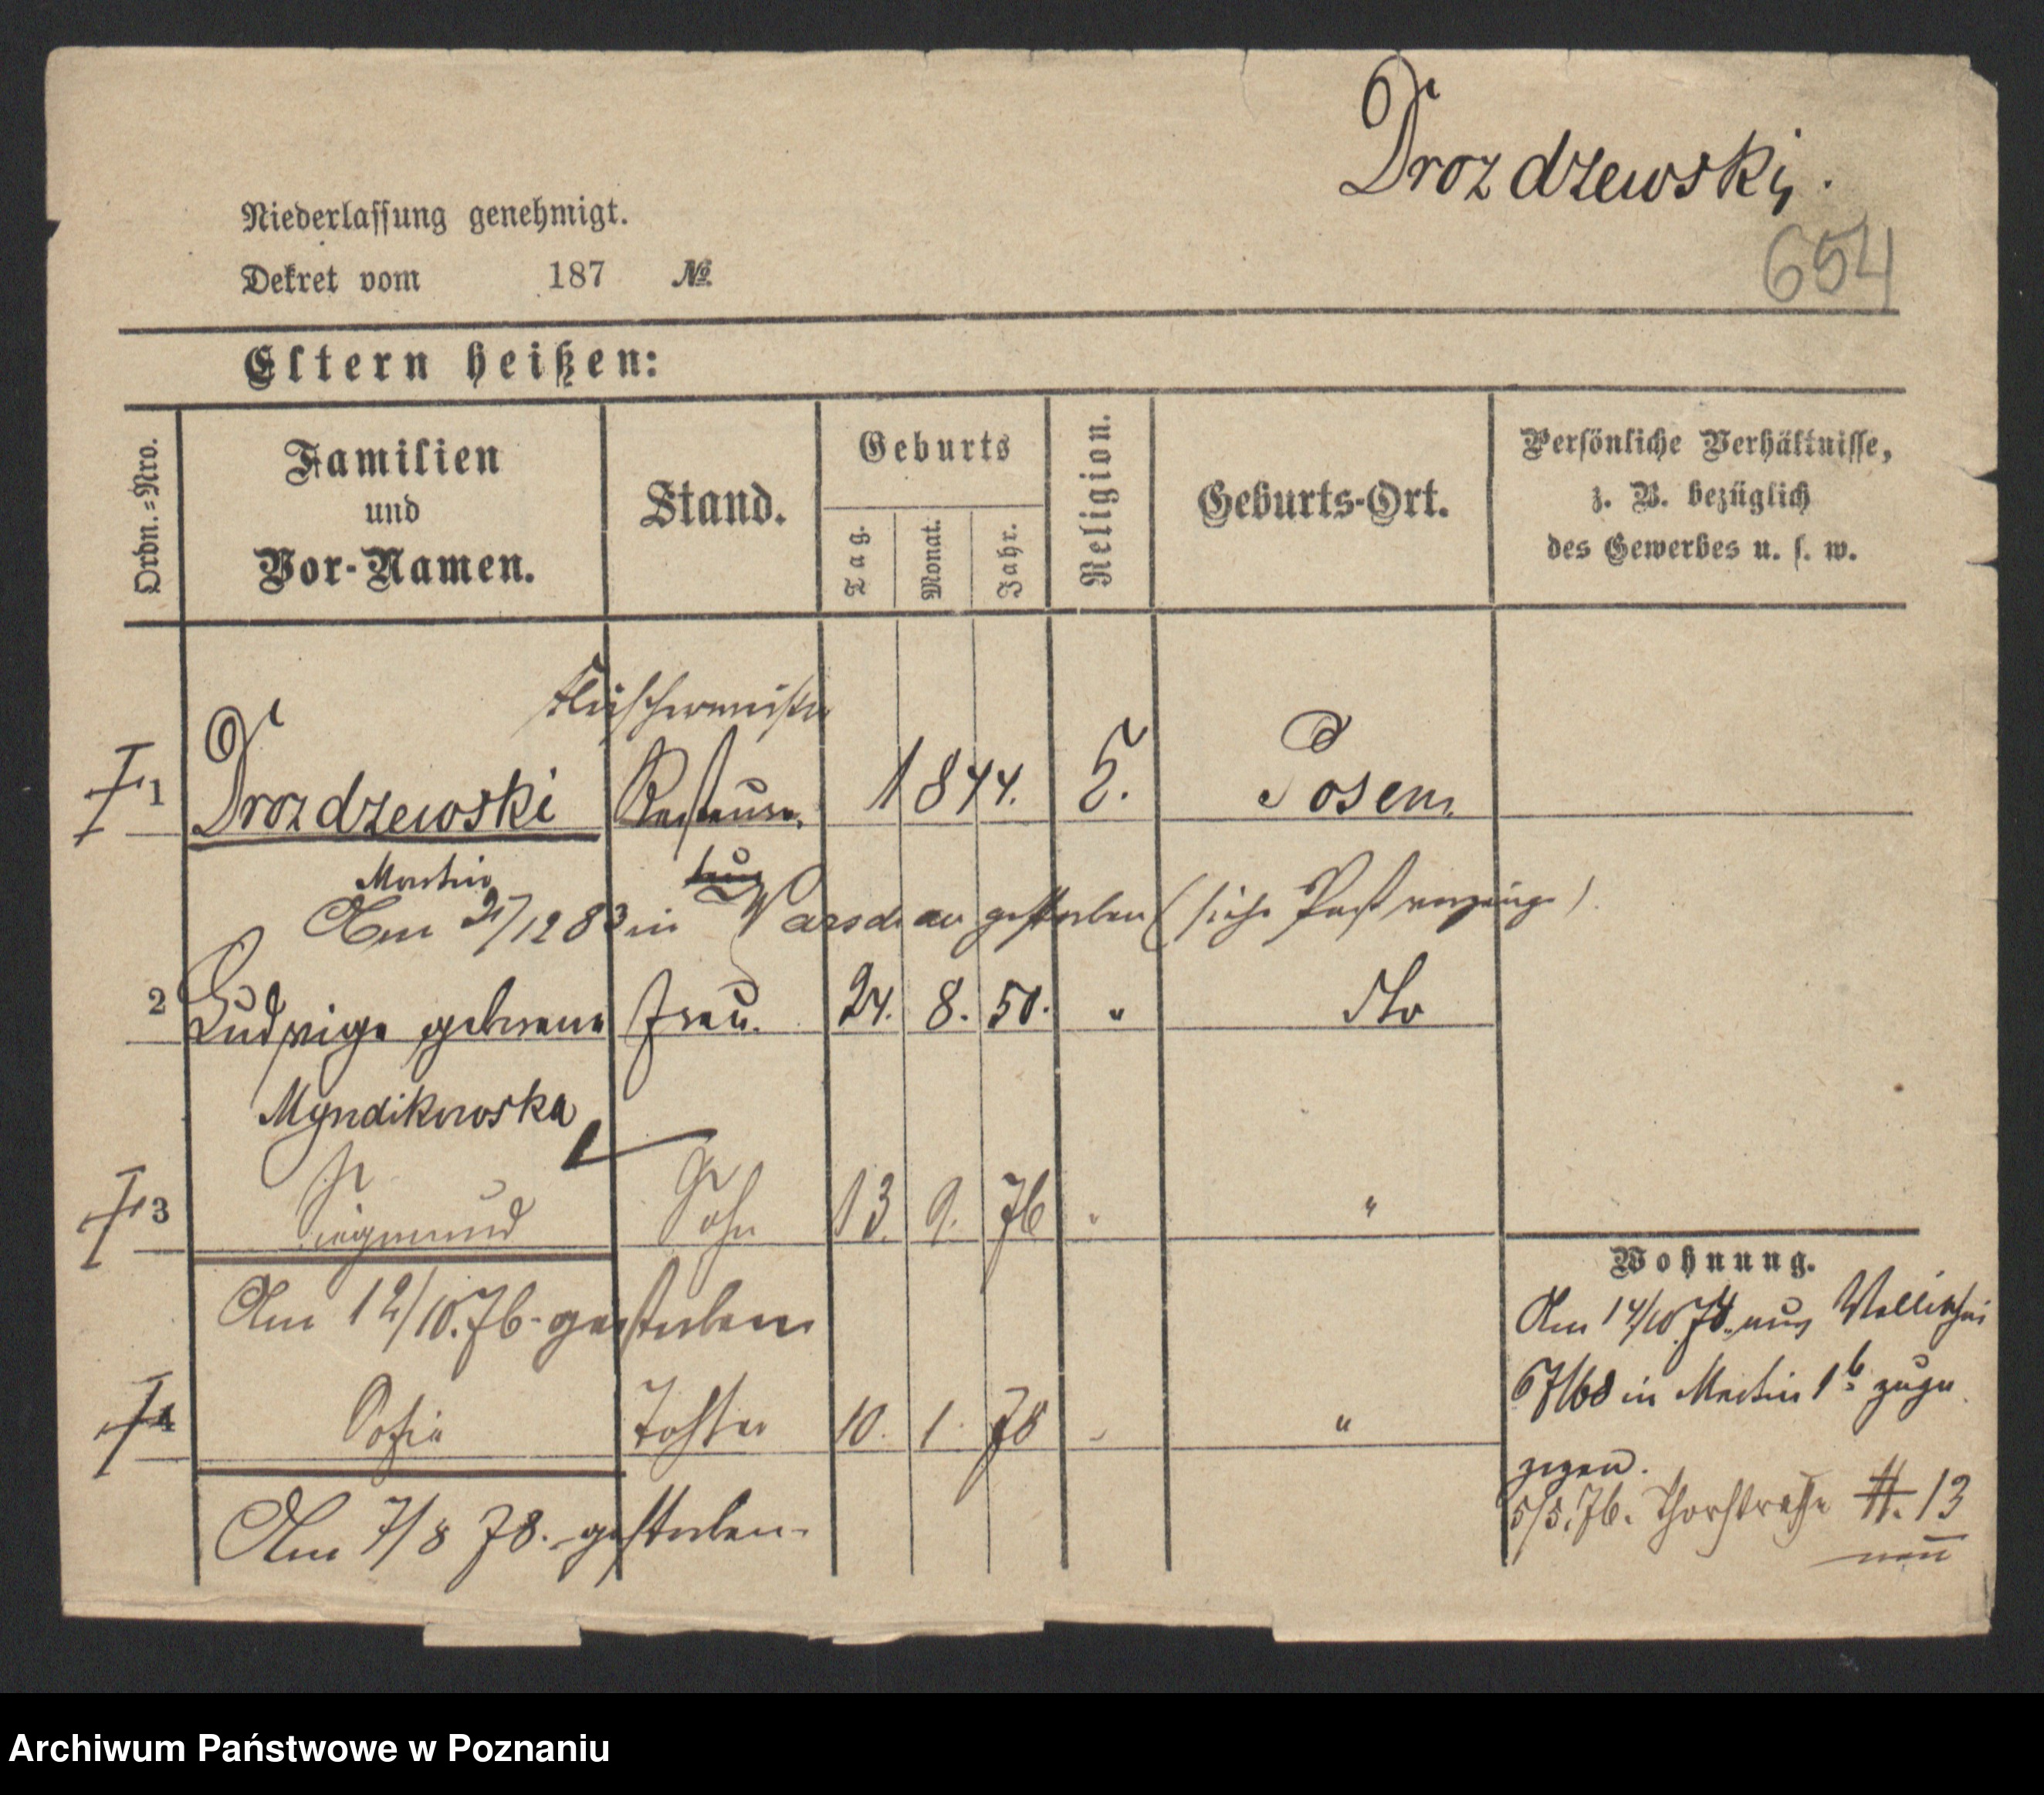 Drozdzewski.
654
Niederlassung genehmigt.
Dekret vom 187 №
Eltern heißen:
Ordn.=Nro.
Familien
und
Vor-Namen.
Stand.
Geburts
Tag.
Monat.
Jahr.
Religion.
Geburts-Ort.
Persönliche Verhältnisse,
z. B. bezüglich
des Gewerbes u. s. w.
Fleischermeister
1 Drozdzewski Restaur. 1844. Posen
Martin
Am 27/12 83 in Warschau gestorben (siehe
2 Ludwiga geborene Frau. 24. 8. 50. " dto
Myndikowska
3 Siegmund Sohn 13. 9. 76 " "
Am 12/10.76. gestorben
4 Sofia Tochter 10. 1. 78 " "
Am 7/8 78. gestorben.
Wohnung.
Am 14/10 74. aus Wallischei
67/68 in Martin 1b zuge
zogen.
5/5.76. Thorstrasse #. 13
neu
Archiwum Państwowe w Poznaniu